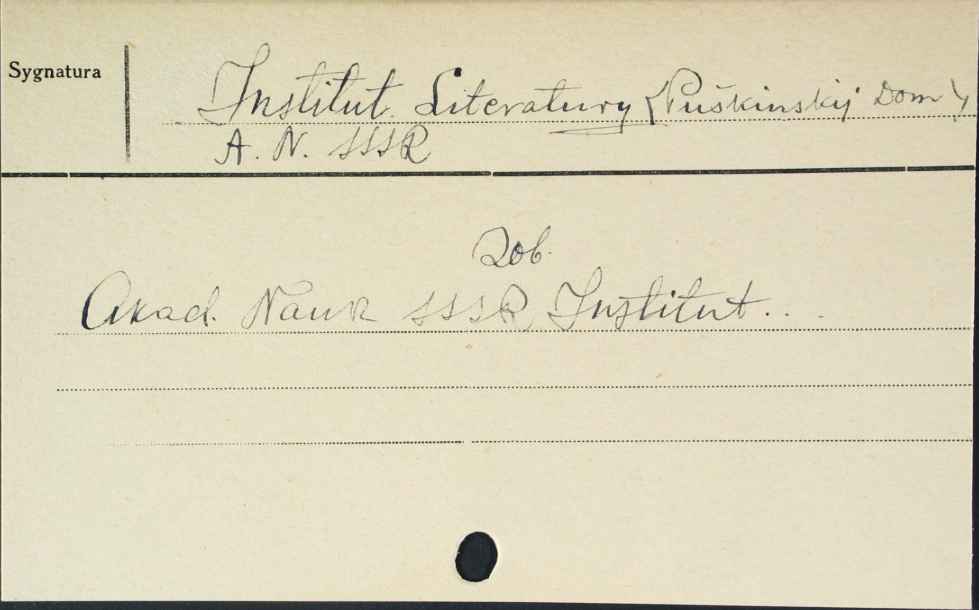 Sygnatura
Institut Literatury (Puškinskij Dom)
A. N. SSSR
Zob.
Akad. Nauk SSSR Institut...